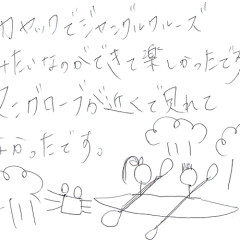 カヤックでジャングルクルーズ
みたいなのができて楽しかったです
マングローブが近くで見れて
よかったです。